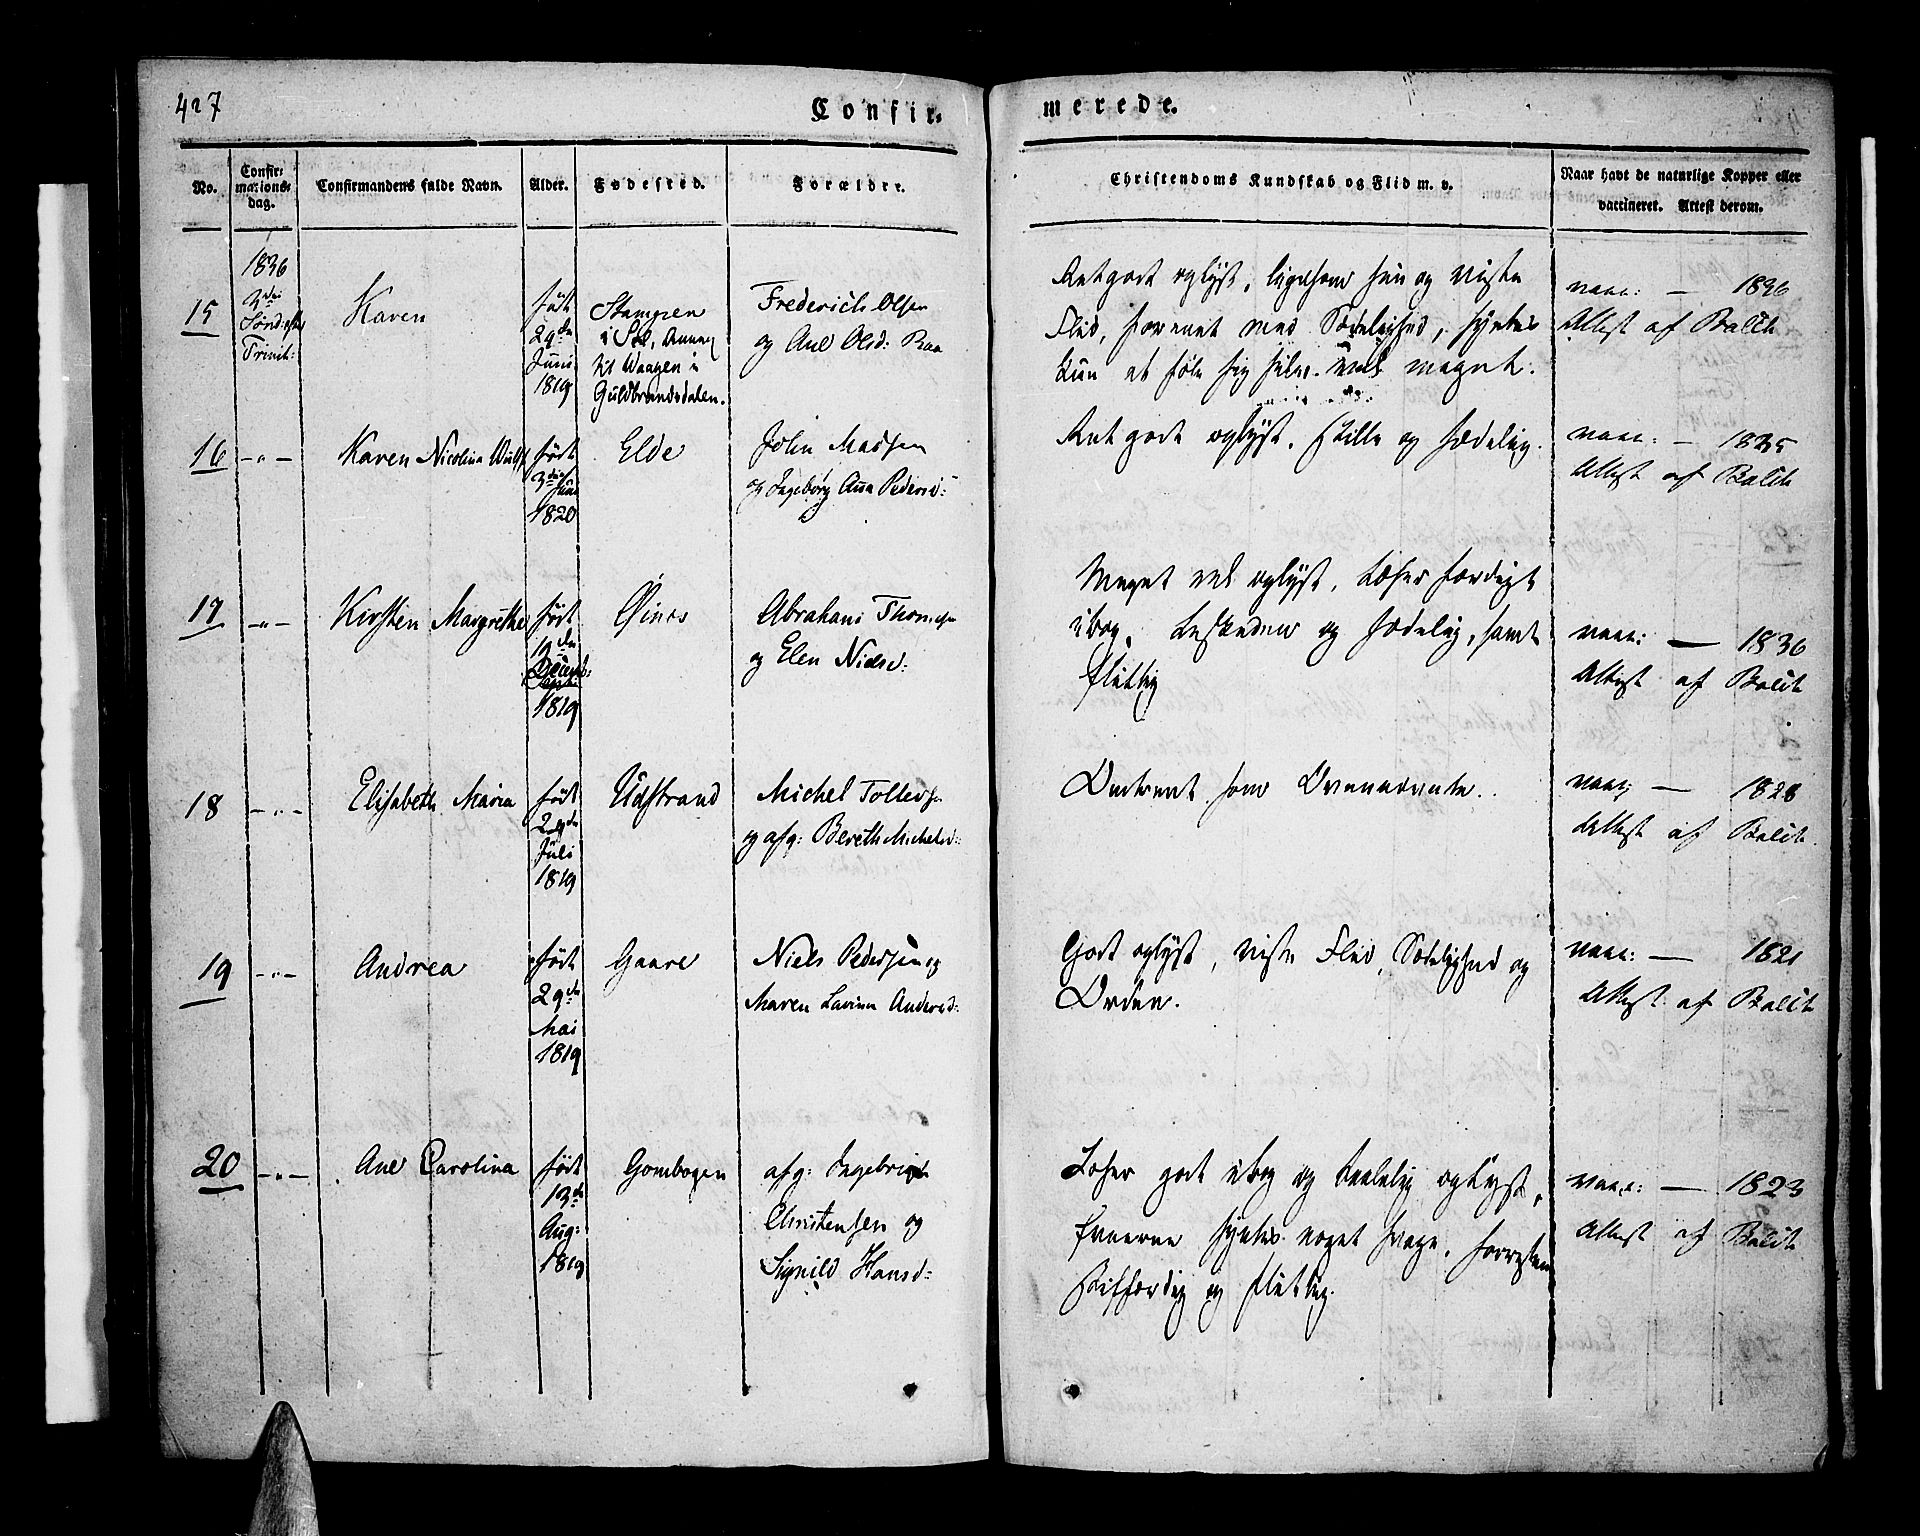 427
Confir-
merede.
No.
Confir-
mations-
dag.
Confirmandens fulde Navn.
Alder.
Fødested.
Forældre.
Christendoms Kundskab og Flid m. v.
Naar havt de naturlige Kopper eller
vaccineret. Attest derom.
15
1836
3die
Sønd: efter
Trinit:
Karen
født
29de
Juni
1819
Stampen
i
Waagen i
Guldbrandsdalen.
Frederich Olsen
og Ane Olsd:
Ret godt oplyst, ligesom hun og viste
Flid, forenet med Sædelighed, syntes
kun at føle sig selv vel meget.
vacc: — 1836
Attest af Balch
16
-"-
Karen Nicolina
født
3die
Juni
1820
Elde
John Madsen
og Ingeborg Anna Pedersd:
Ret godt oplyst, stille og sædelig.
vacc: — 1835
Attest af Balch
17
-"-
Kirsten Margrethe
født
de
1819
Øines
Abraham Thomes:
og Elen Nielsd:
Meget vel oplyst, læser færdigt
i bog, beskeden og sædelig, samt
flittig
vacc: — 1836
Attest af Balch
18
-"-
Elisabeth Maria
født
29de
Juli
1819
Udstrand
Michel Tollefs:
og afg: Bereth Michelsd:
Omtrent som Ovennævnte.
vacc: — 1828
Attest af Balch
19
-"-
Andrea
født
29de
Mai
1819
Gaare
Niels Pedersen og
Maren Lavina Andersd:
Godt oplyst, viste Flid, Sædelighed og
Orden.
vacc: — 1821
Attest af Balch
20
-"-
Ane Carolina
født
13de
Aug:
1819
Gombogen
afg: Ingebrigt
Christensen og
Signild Hansd:
Læser godt i bog og taalelig oplyst,
Evnerne syntes noget svage, forresten
skikkelig og flittig.
vacc: — 1823
Attest af Balch